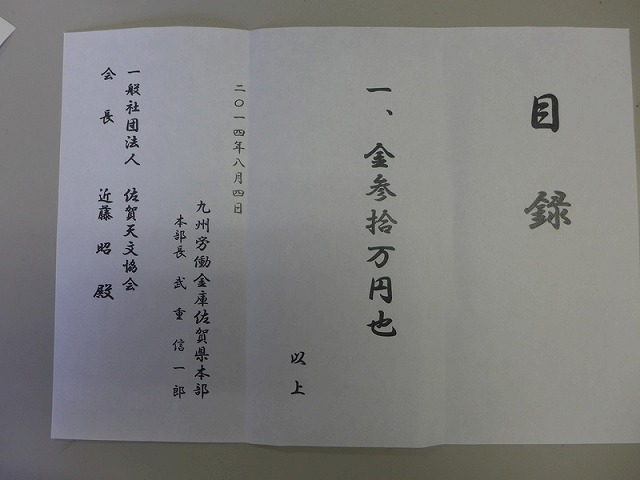 目録
一、金参拾万円也
以上
二〇一四年八月四日
九州労働金庫佐賀県本部
本部長 武重信一郎
一般社団法人 佐賀天文協会
会長 近藤昭殿